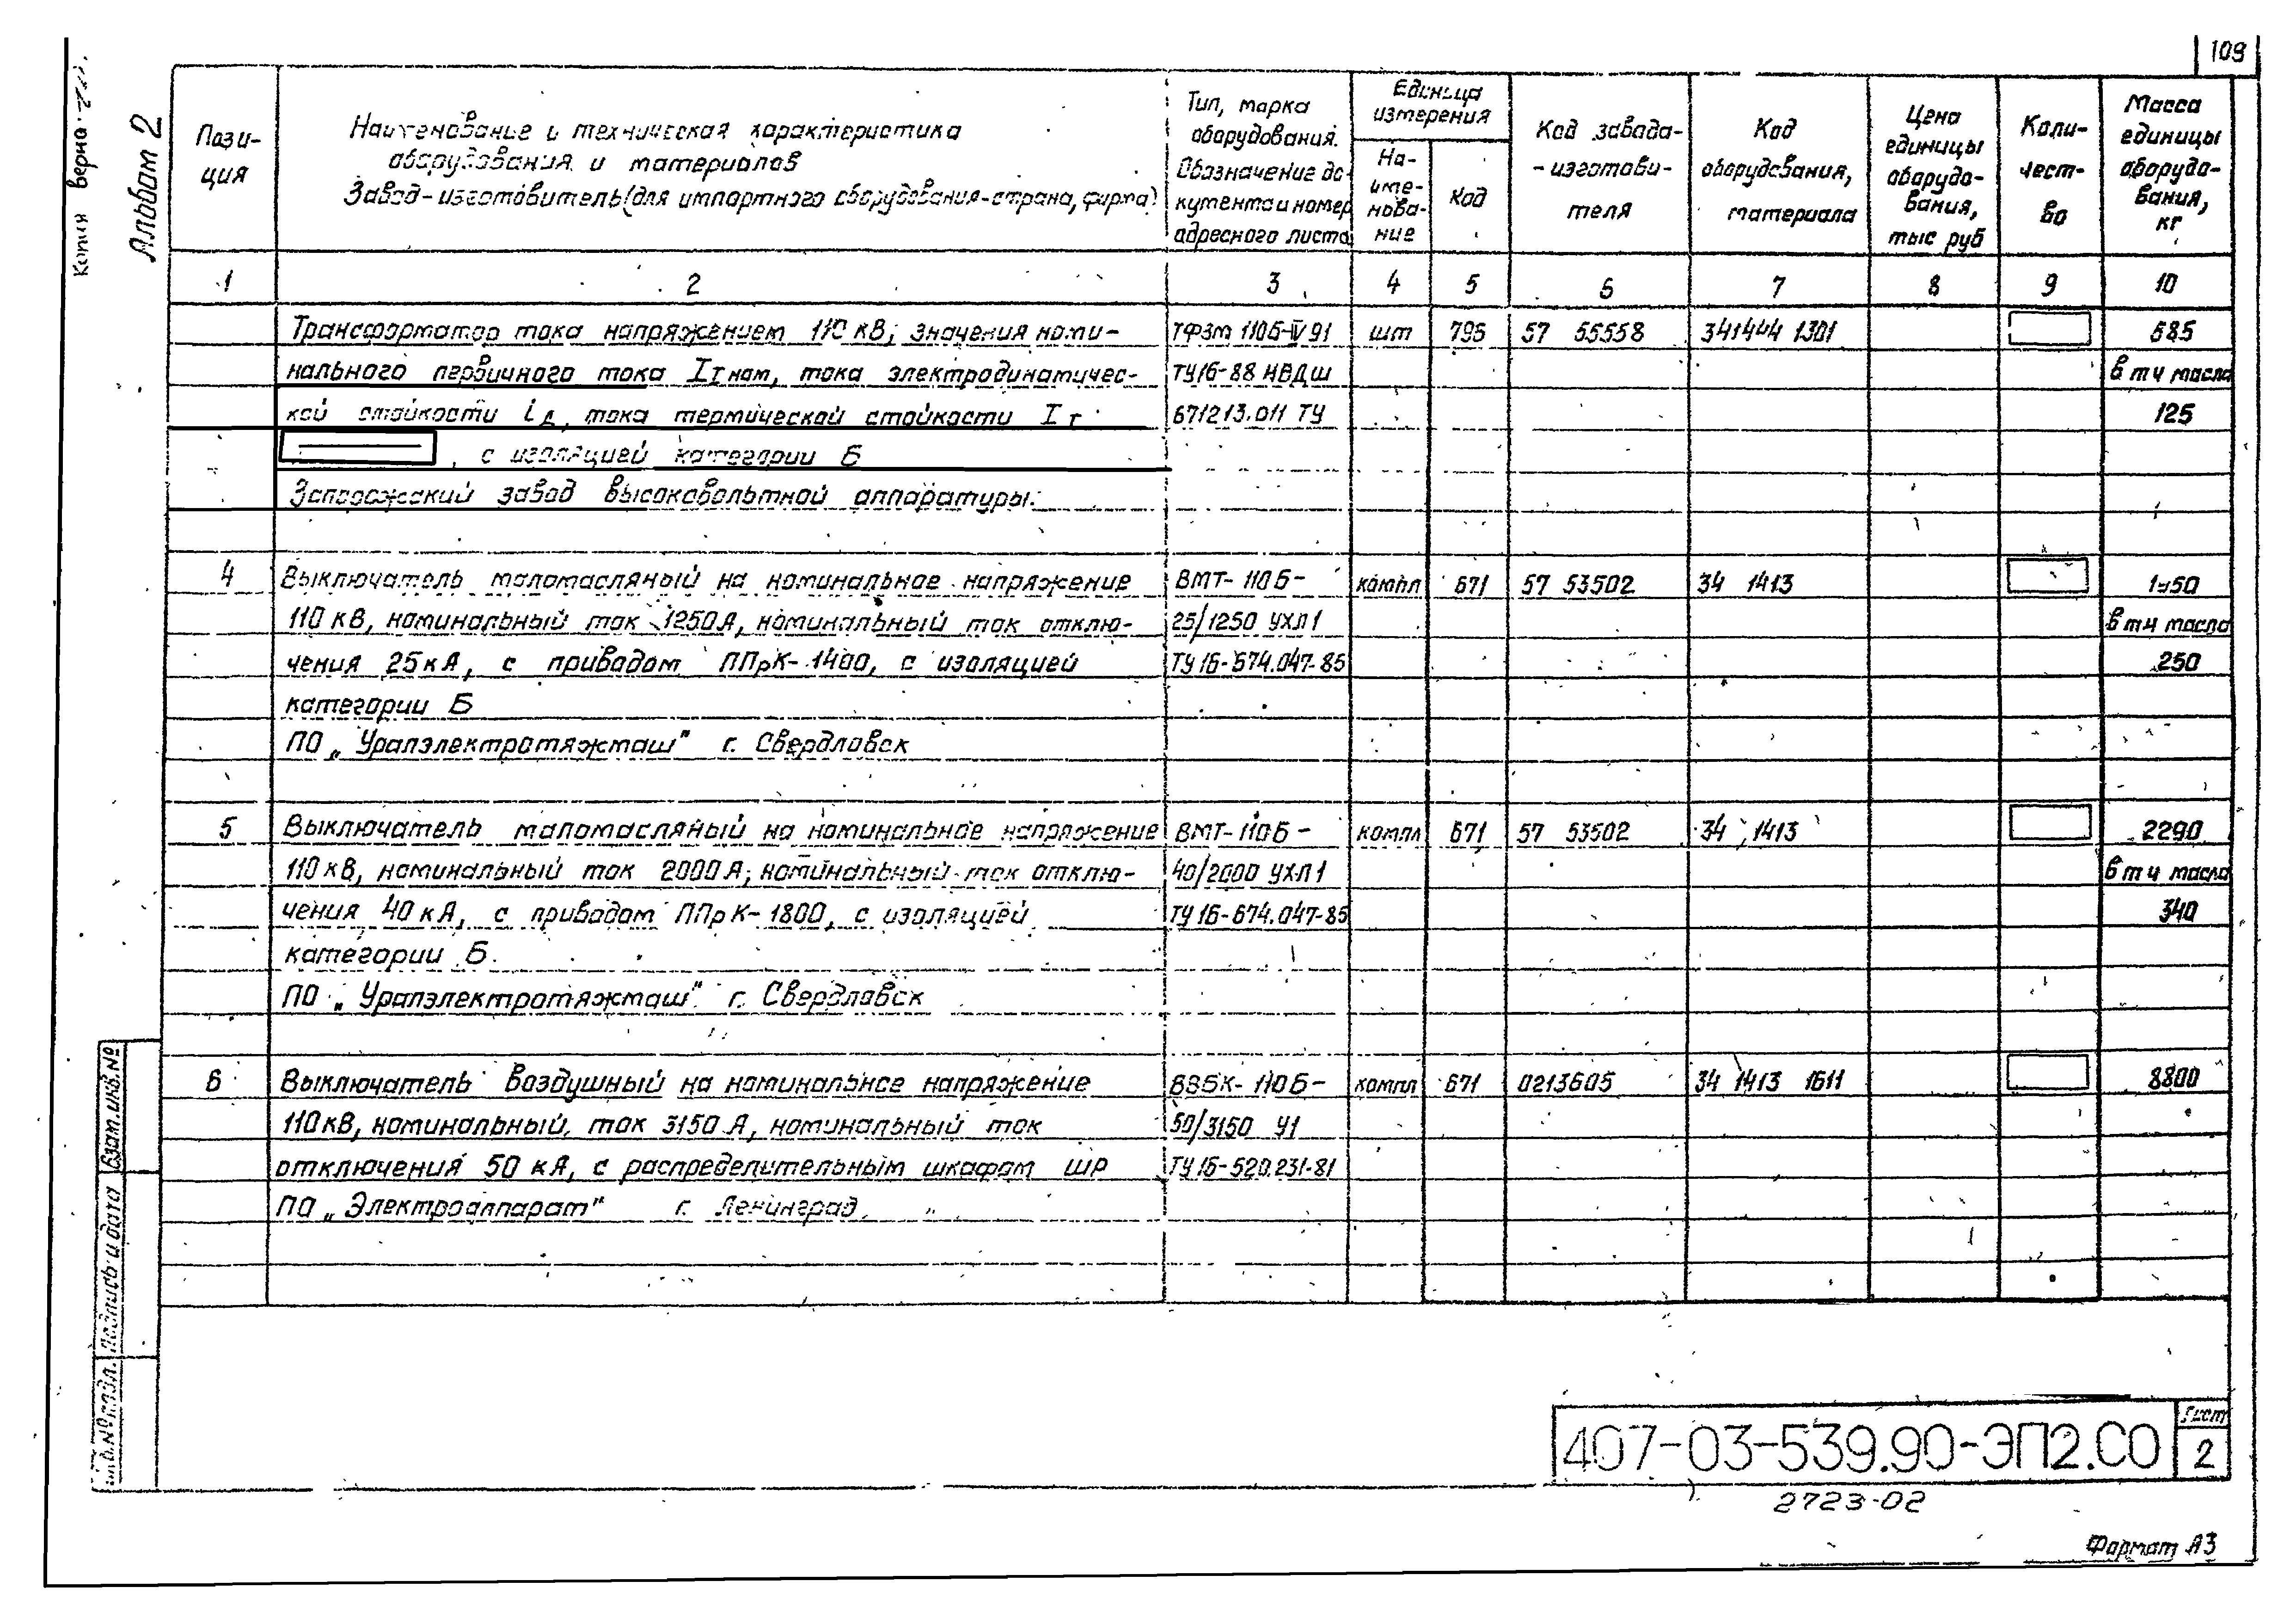 109
Копия верна
Альбом 2
Пози-
ция
Наименование и техническая характеристика
оборудования и материалов
Завод-изготовитель (для импортного оборудования-страна, фирма)
Тип, марка
оборудования.
Обозначение до-
кумента и номер
адресного листа
Единица
измерения
На-
име-
нова-
ние
Код
Код завода-
-изготови-
теля
Код
оборудования,
материала
Цена
единицы
оборудо-
вания,
тыс руб
Коли-
чест-
во
Масса
единицы
оборудо-
вания,
кг
1 2 3 4 5 6 7 8 9 10
Трансформатор тока напряжением 110 кВ, значения номи- ТФЗМ 110Б-IV 91 шт 796 57 55558 341444 1301 685
нального первичного тока I1 ном, тока электродинамичес- ТУ16-88 ИВДШ в т ч масла
кой стойкости iд, тока термической стойкости Iт 671213.011 ТУ 125
, с изоляцией категории Б
Запорожский завод высоковольтной аппаратуры.
4 Выключатель маломасляный на номинальное напряжение ВМТ-110Б- компл 671 57 53502 34 1413
110 кВ, номинальный ток 1250А, номинальный ток отклю- 25/1250 УХЛ1 в т ч масла
чения 25 кА, с приводом ППрК-1400, с изоляцией ТУ16-674.047-85 250
категории Б
ПО „Уралэлектротяжмаш" г. Свердловск
5 Выключатель маломасляный на номинальное напряжение ВМТ-110Б- компл 671 57 53502 34 1413 2290
110 кВ, номинальный ток 2000А, номинальный ток отклю- 40/2000 УХЛ1 в т ч масла
чения 40 кА, с приводом ППрК-1800, с изоляцией ТУ16-674.047-85 340
категории Б.
ПО „Уралэлектротяжмаш" г. Свердловск
6 Выключатель воздушный на номинальное напряжение ВВБК-110Б- компл 671 0213605 34 1413 1611 8800
110 кВ, номинальный ток 3150 А, номинальный ток 50/3150 У1
отключения 50 кА, с распределительным шкафом ШР ТУ16-520.231-81
ПО „Электроаппарат" г. Ленинград
Взам.инв.№
Подпись и дата
Инв.№ подл.
407-03-539.90-ЭП2.СО
Лист
2
2723-02
Формат А3